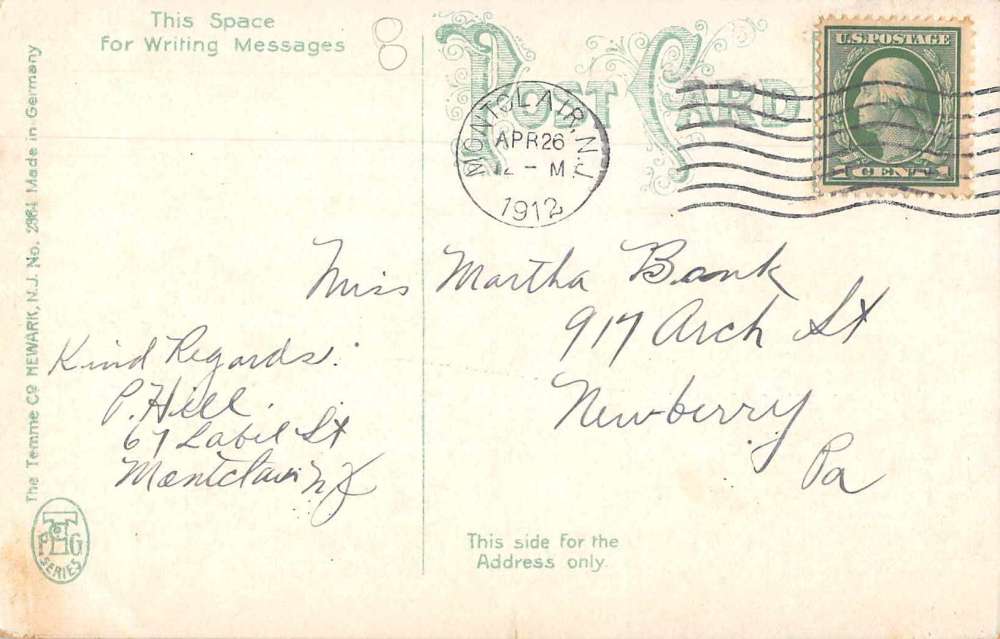 This Space
For Writing Messages
8
POST CARD
U.S. POSTAGE
1 CENT 1
MONTCLAIR, N.J.
APR 26
12 - M
1912
Miss Martha Bank
917 Arch St
Newberry
Pa
Kind Regards.
P. Hill.
67 Label St
Montclair NJ
The Temme Co NEWARK, N.J. No. 2864 Made in Germany
P G
SERIES
This side for the
Address only.